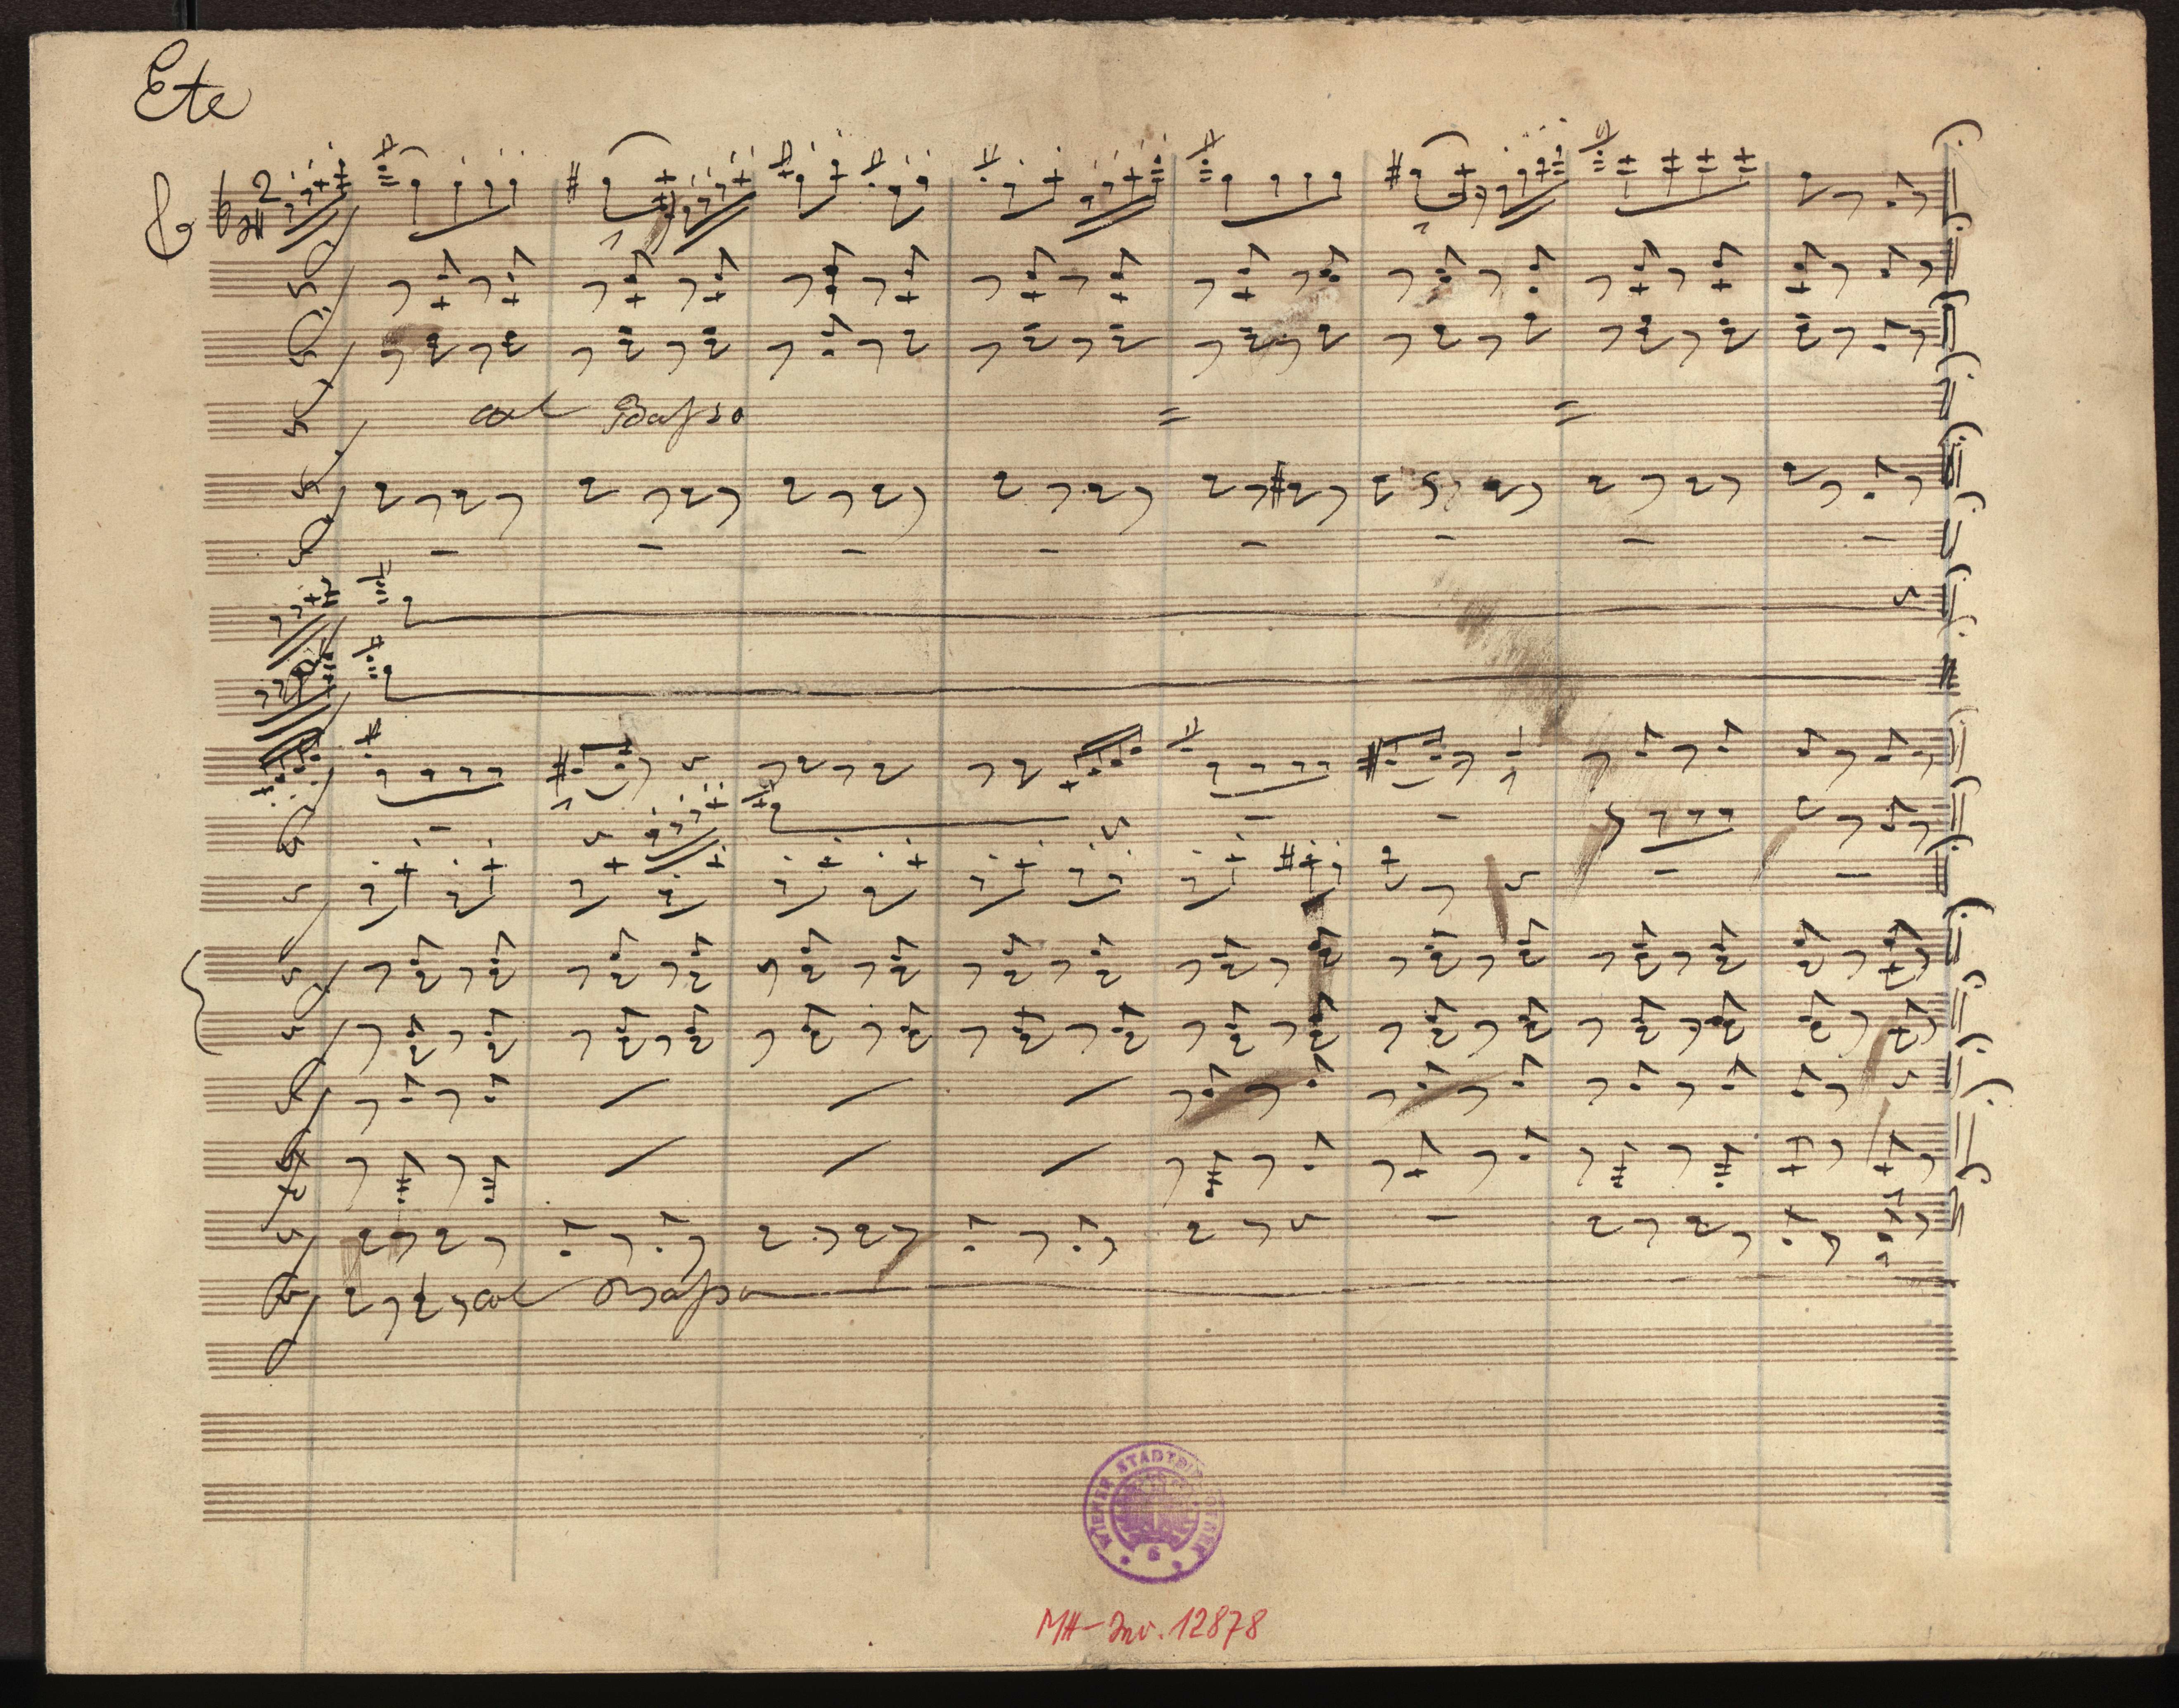 Ete
2
col Basso
col Basso
WIENER STADTBIBLIOTHEK
MH-Inv. 12878